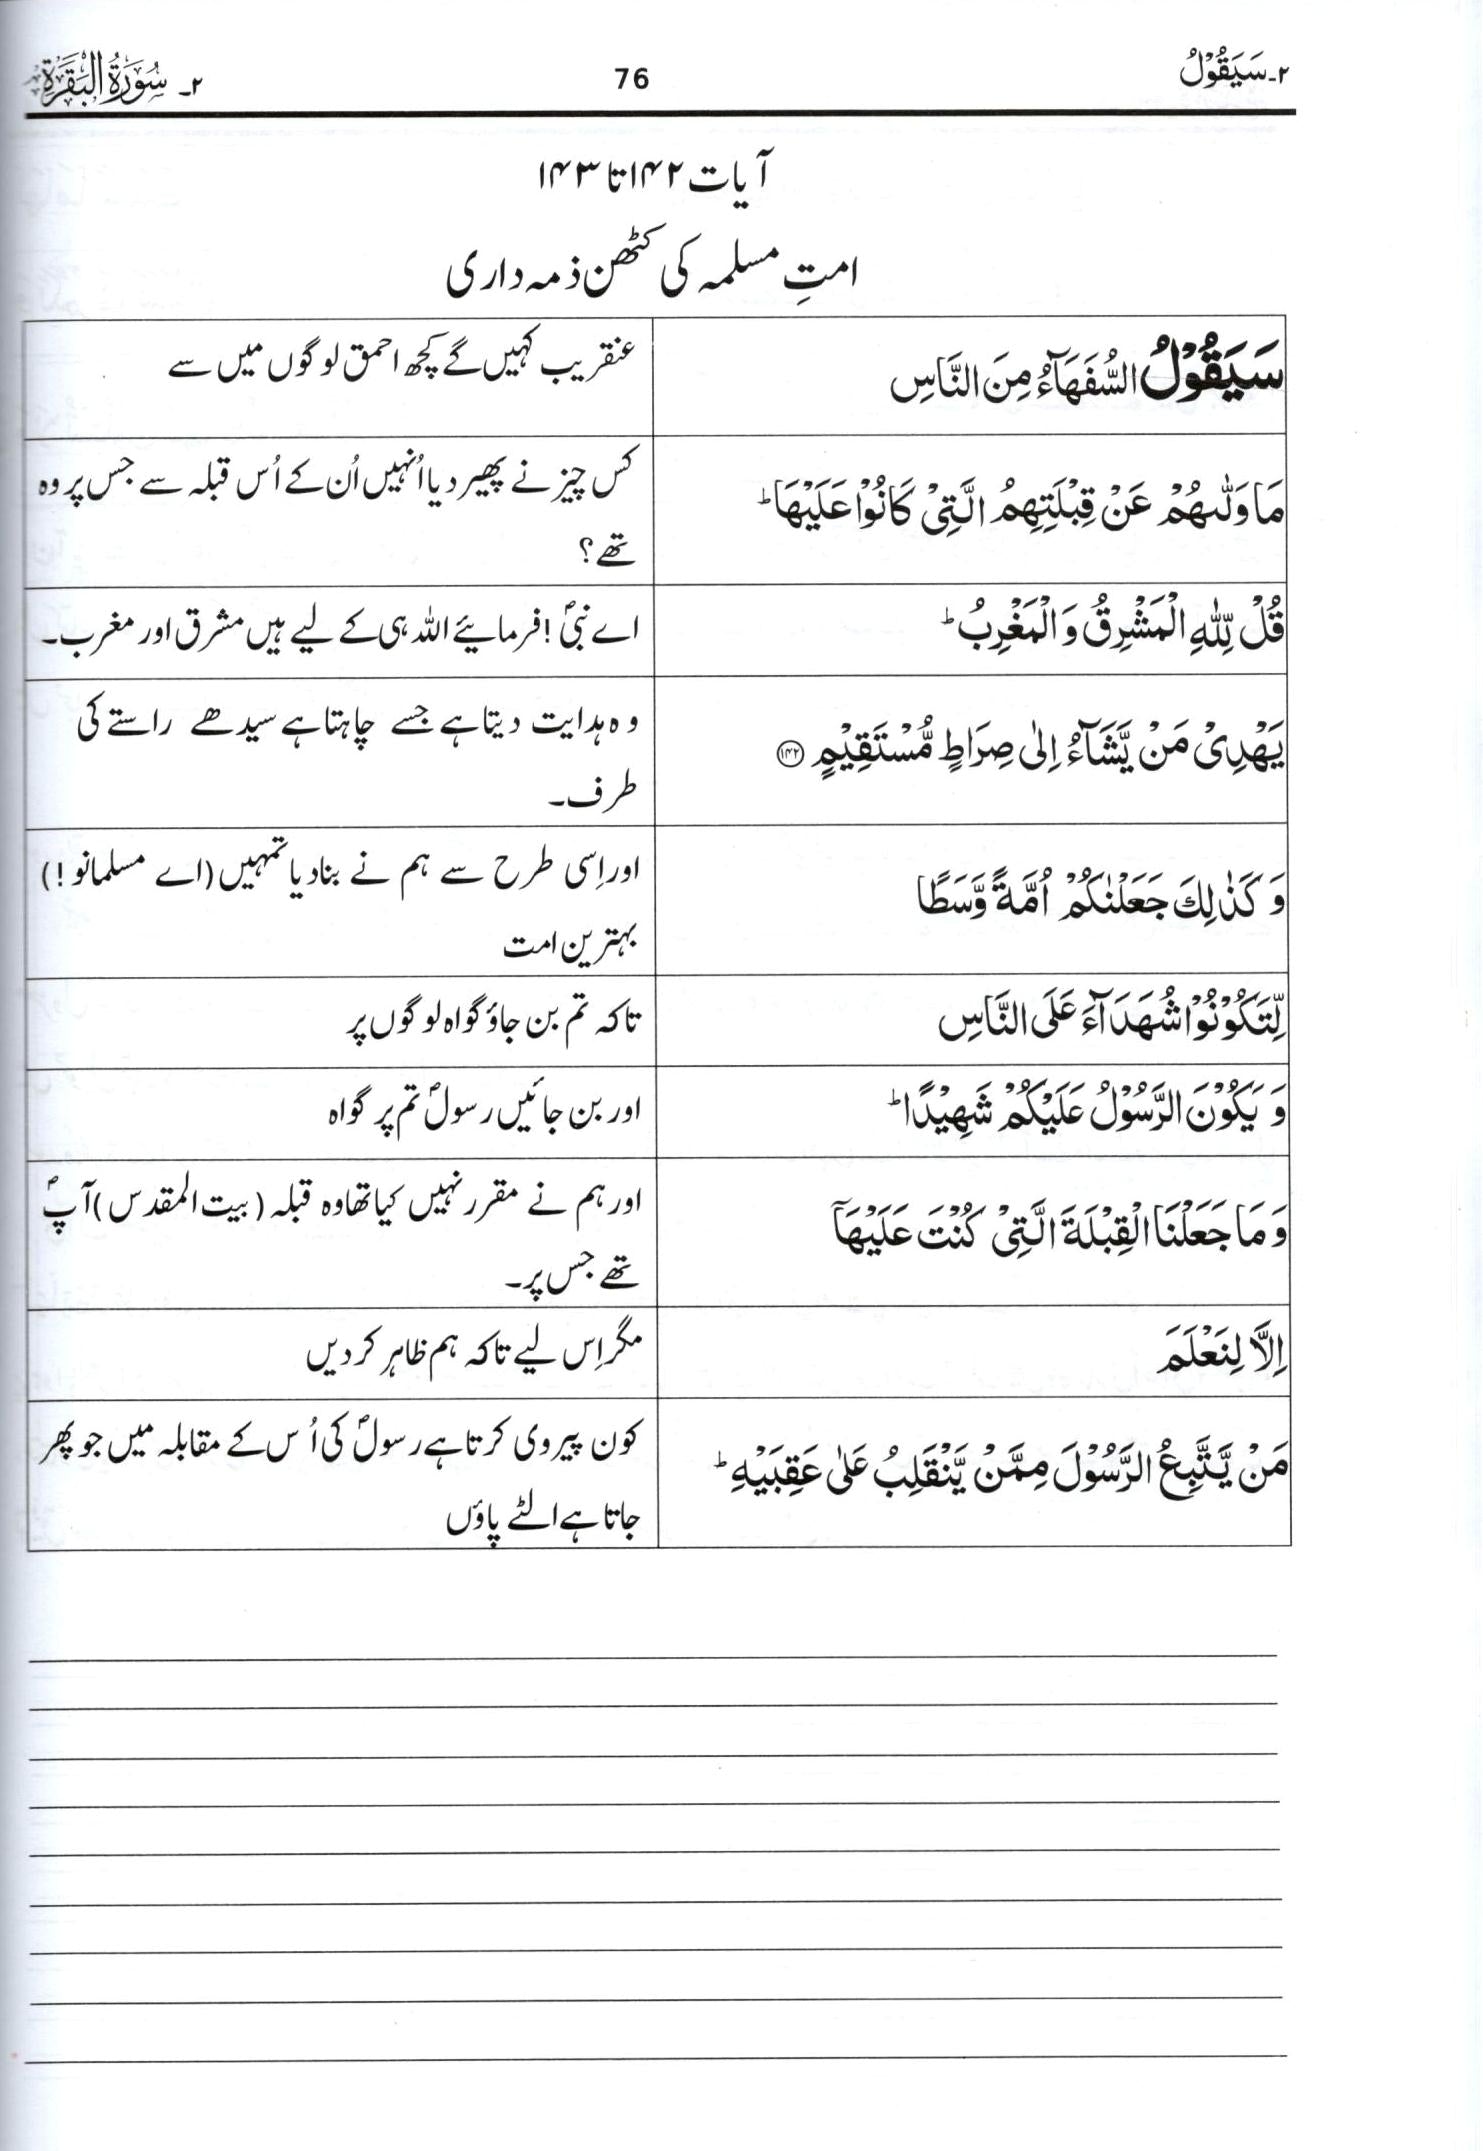 ۲۔ سَيَقُوْلُ
76
۲۔ سُوْرَةُ الْبَقَرَةِ
آیات ۱۴۲ تا ۱۴۳
امتِ مسلمہ کی کٹھن ذمہ داری
سَيَقُوْلُ السُّفَهَآءُ مِنَ النَّاسِ
عنقریب کہیں گے کچھ احمق لوگوں میں سے
مَا وَلّٰىهُمْ عَنْ قِبْلَتِهِمُ الَّتِيْ كَانُوْا عَلَيْهَا ؕ
کس چیز نے پھیر دیا اُنہیں اُن کے اُس قبلہ سے جس پر وہ
تھے؟
قُلْ لِّلّٰهِ الْمَشْرِقُ وَ الْمَغْرِبُ ؕ
اے نبیؐ! فرمایئے اللہ ہی کے لیے ہیں مشرق اور مغرب۔
يَهْدِيْ مَنْ يَّشَآءُ اِلٰى صِرَاطٍ مُّسْتَقِيْمٍ ﴿۱۴۲﴾
وہ ہدایت دیتا ہے جسے چاہتا ہے سیدھے راستے کی
طرف۔
وَ كَذٰلِكَ جَعَلْنٰكُمْ اُمَّةً وَّسَطًا
اور اِسی طرح سے ہم نے بنا دیا تمہیں (اے مسلمانو!)
بہترین امت
لِّتَكُوْنُوْا شُهَدَآءَ عَلَى النَّاسِ
تاکہ تم بن جاؤ گواہ لوگوں پر
وَ يَكُوْنَ الرَّسُوْلُ عَلَيْكُمْ شَهِيْدًا ؕ
اور بن جائیں رسولؐ تم پر گواہ
وَ مَا جَعَلْنَا الْقِبْلَةَ الَّتِيْ كُنْتَ عَلَيْهَاۤ
اور ہم نے مقرر نہیں کیا تھا وہ قبلہ (بیت المقدس) آپؐ
تھے جس پر۔
اِلَّا لِنَعْلَمَ
مگر اِس لیے تاکہ ہم ظاہر کر دیں
مَنْ يَّتَّبِعُ الرَّسُوْلَ مِمَّنْ يَّنْقَلِبُ عَلٰى عَقِبَيْهِ ؕ
کون پیروی کرتا ہے رسولؐ کی اُس کے مقابلہ میں جو پھر
جاتا ہے الٹے پاؤں